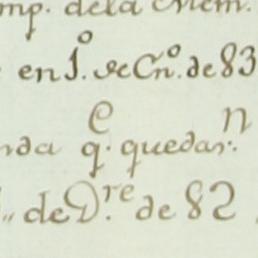 mp. dela Mem.
en 1.º de En.º de 83
nda q.e quedar.n
de D.re de 82